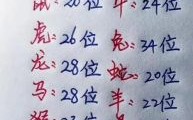 鼠20位 牛24位
虎26位 兔34位
龙28位 蛇20位
马28位 羊22位
猴